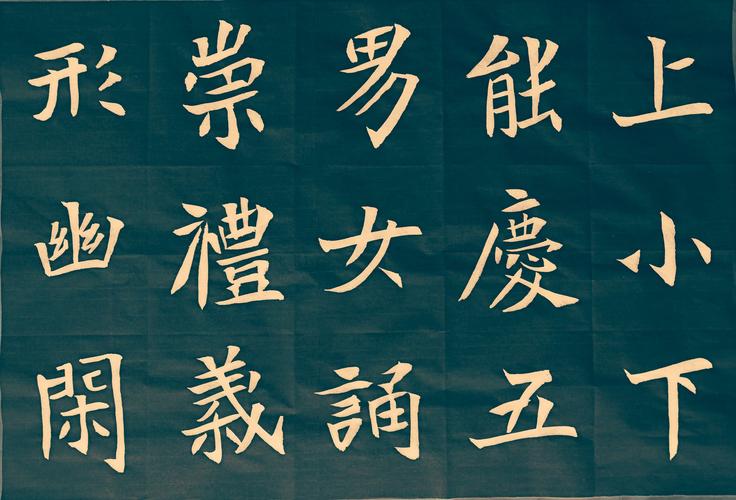 上小下
能慶五
男女誦
崇禮義
形幽閑